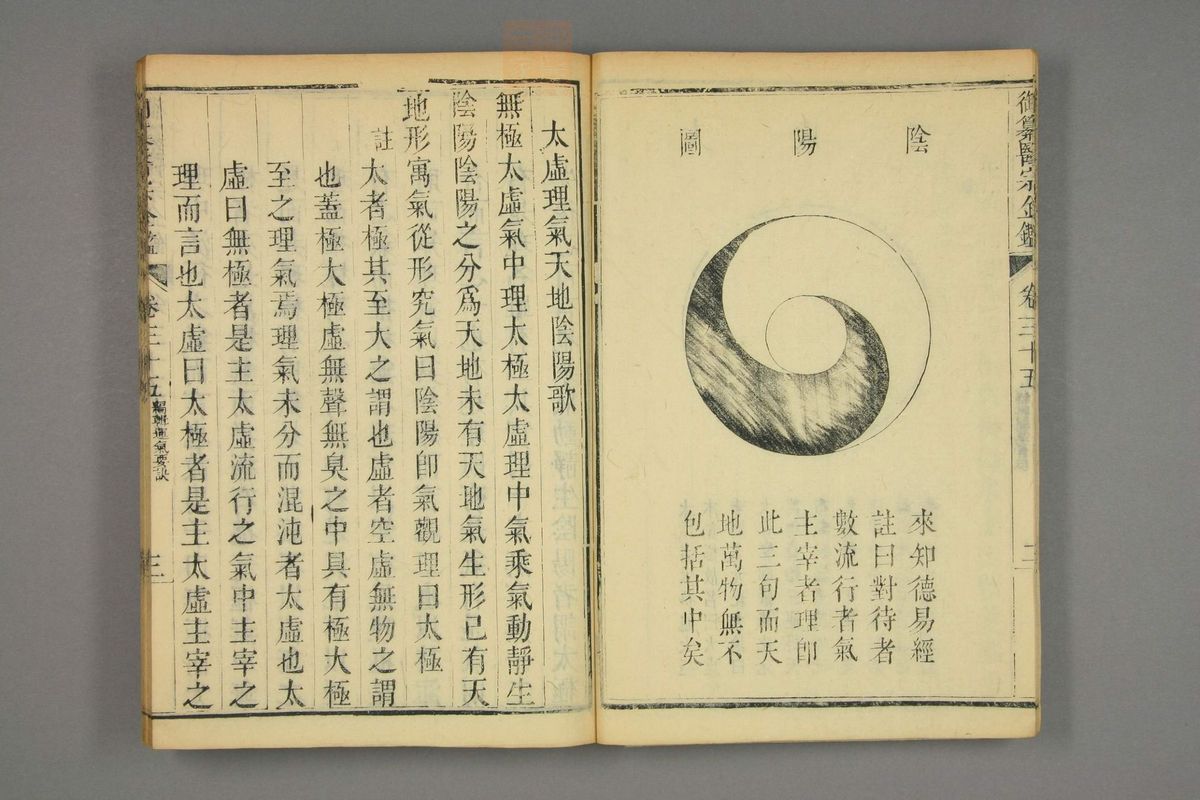 御纂醫宗金鑑
卷三十五
三
陰陽圖
來知德易經
註曰對待者
數流行者氣
主宰者理即
此三句而天
地萬物無不
包括其中矣
太虛理氣天地陰陽歌
無極太虛氣中理太極太虛理中氣乘氣動靜生
陰陽陰陽之分爲天地未有天地氣生形已有天
地形寓氣從形究氣曰陰陽卽氣觀理曰太極
註
太者極其至大之謂也虛者空虛無物之謂
也蓋極大極虛無聲無臭之中具有極大極
至之理氣焉理氣未分而混沌者太虛也太
虛曰無極者是主太虛流行之氣中主宰之
理而言也太虛曰太極者是主太虛主宰之
卷三十五
編輯運氣要訣